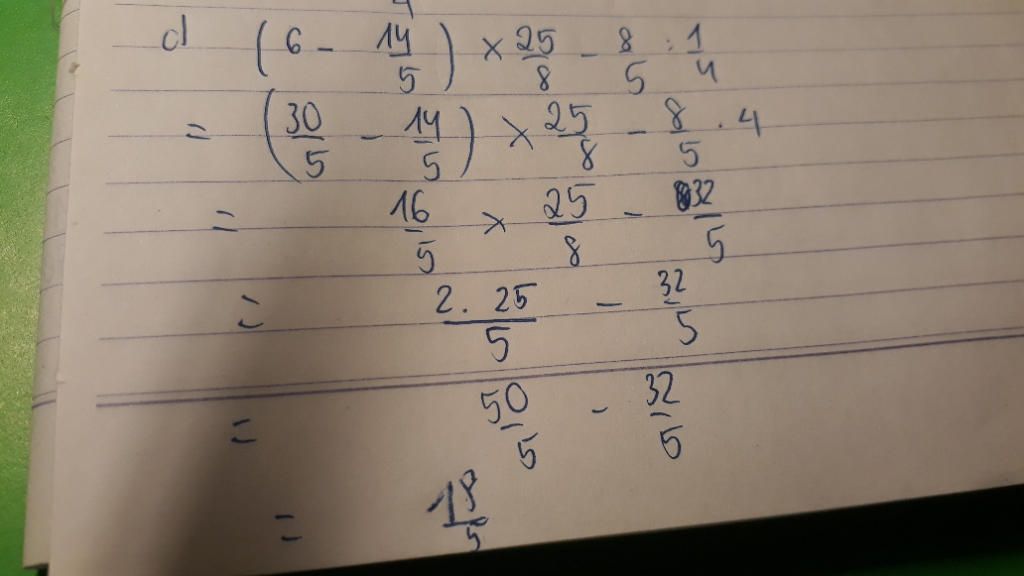 d (6 - 14/5) × 25/8 - 8/5 : 1/4
= (30/5 - 14/5) × 25/8 - 8/5 . 4
= 16/5 × 25/8 - 32/5
= 2. 25/5 - 32/5
= 50/5 - 32/5
= 18/5